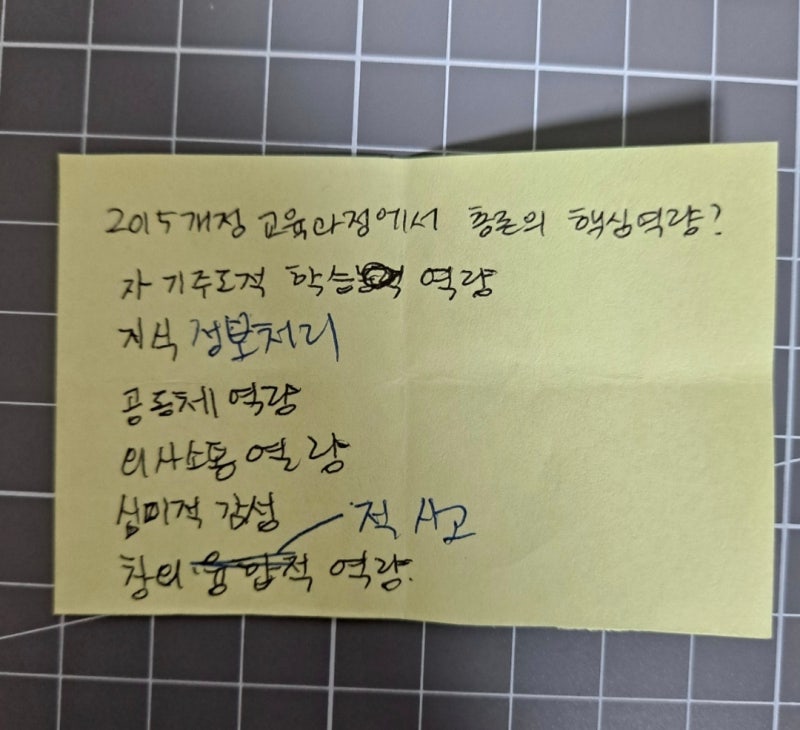 2015개정 교육과정에서 총론의 핵심역량?
자기주도적 학습 역량
지식 정보처리
공동체 역량
의사소통 역량
심미적 감성
적 사고
창의 융합적 역량.